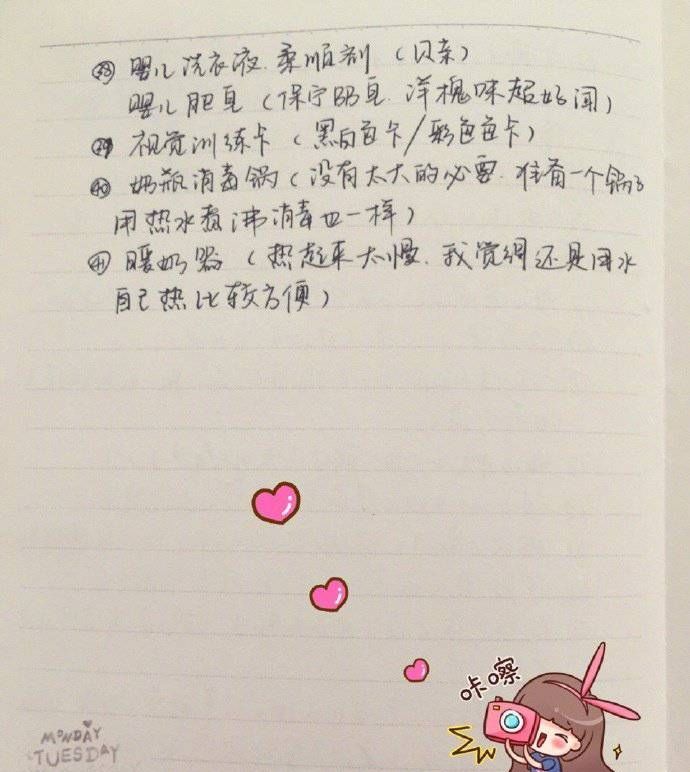 ㊳ 婴儿洗衣液.柔顺剂（贝亲）
婴儿肥皂（保宁的皂.洋槐味超好闻）
㊴ 视觉训练卡（黑白色卡/彩色色卡）
㊵ 奶瓶消毒锅（没有太大的必要.准备一个锅子
用热水煮沸消毒也一样）
㊶ 暖奶器（热起来太慢.我觉得还是用水
自己热比较方便）
咔嚓
MONDAY
TUESDAY